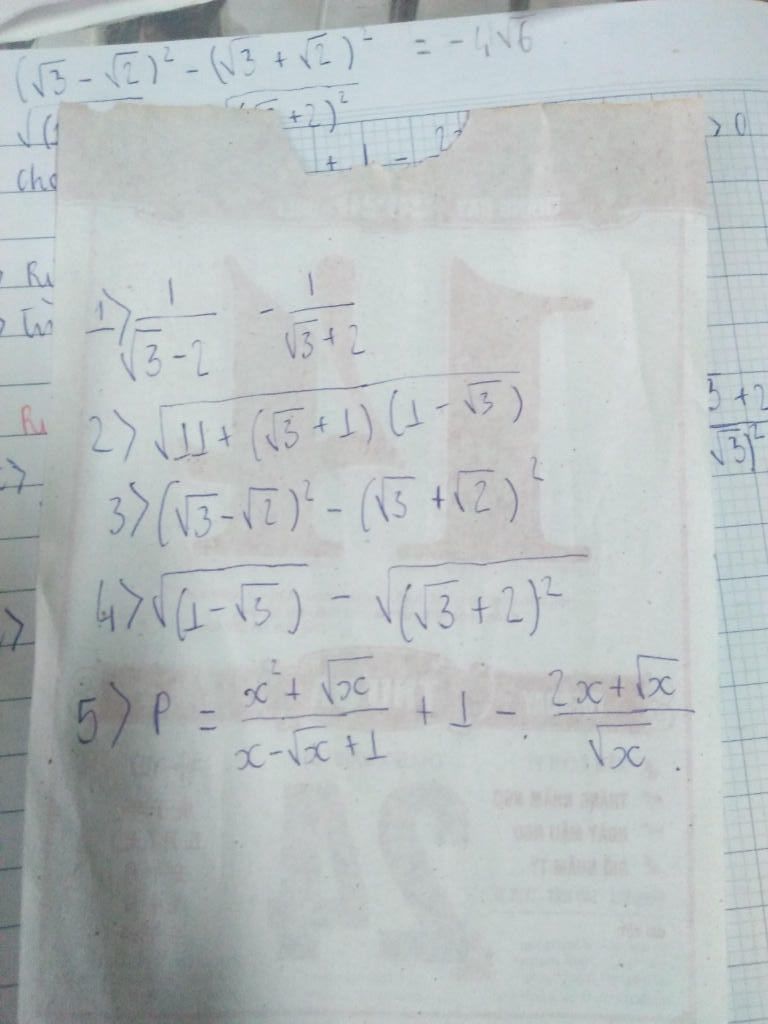 (√3 - √2)² - (√3 + √2)² = -4√6
+2)²
+ 1 - 2
> 0
Cho
1> 1/(√3 - 2) - 1/(√3 + 2)
5 + 2
√3)²
2> √(11 + (√3 + 1)(1 - √3))
3> (√3 - √2)² - (√3 + √2)²
4> √(1 - √3) - √((√3 + 2)²)
5> P = (x² + √x)/(x - √x + 1) + 1 - (2x + √x)/√x.